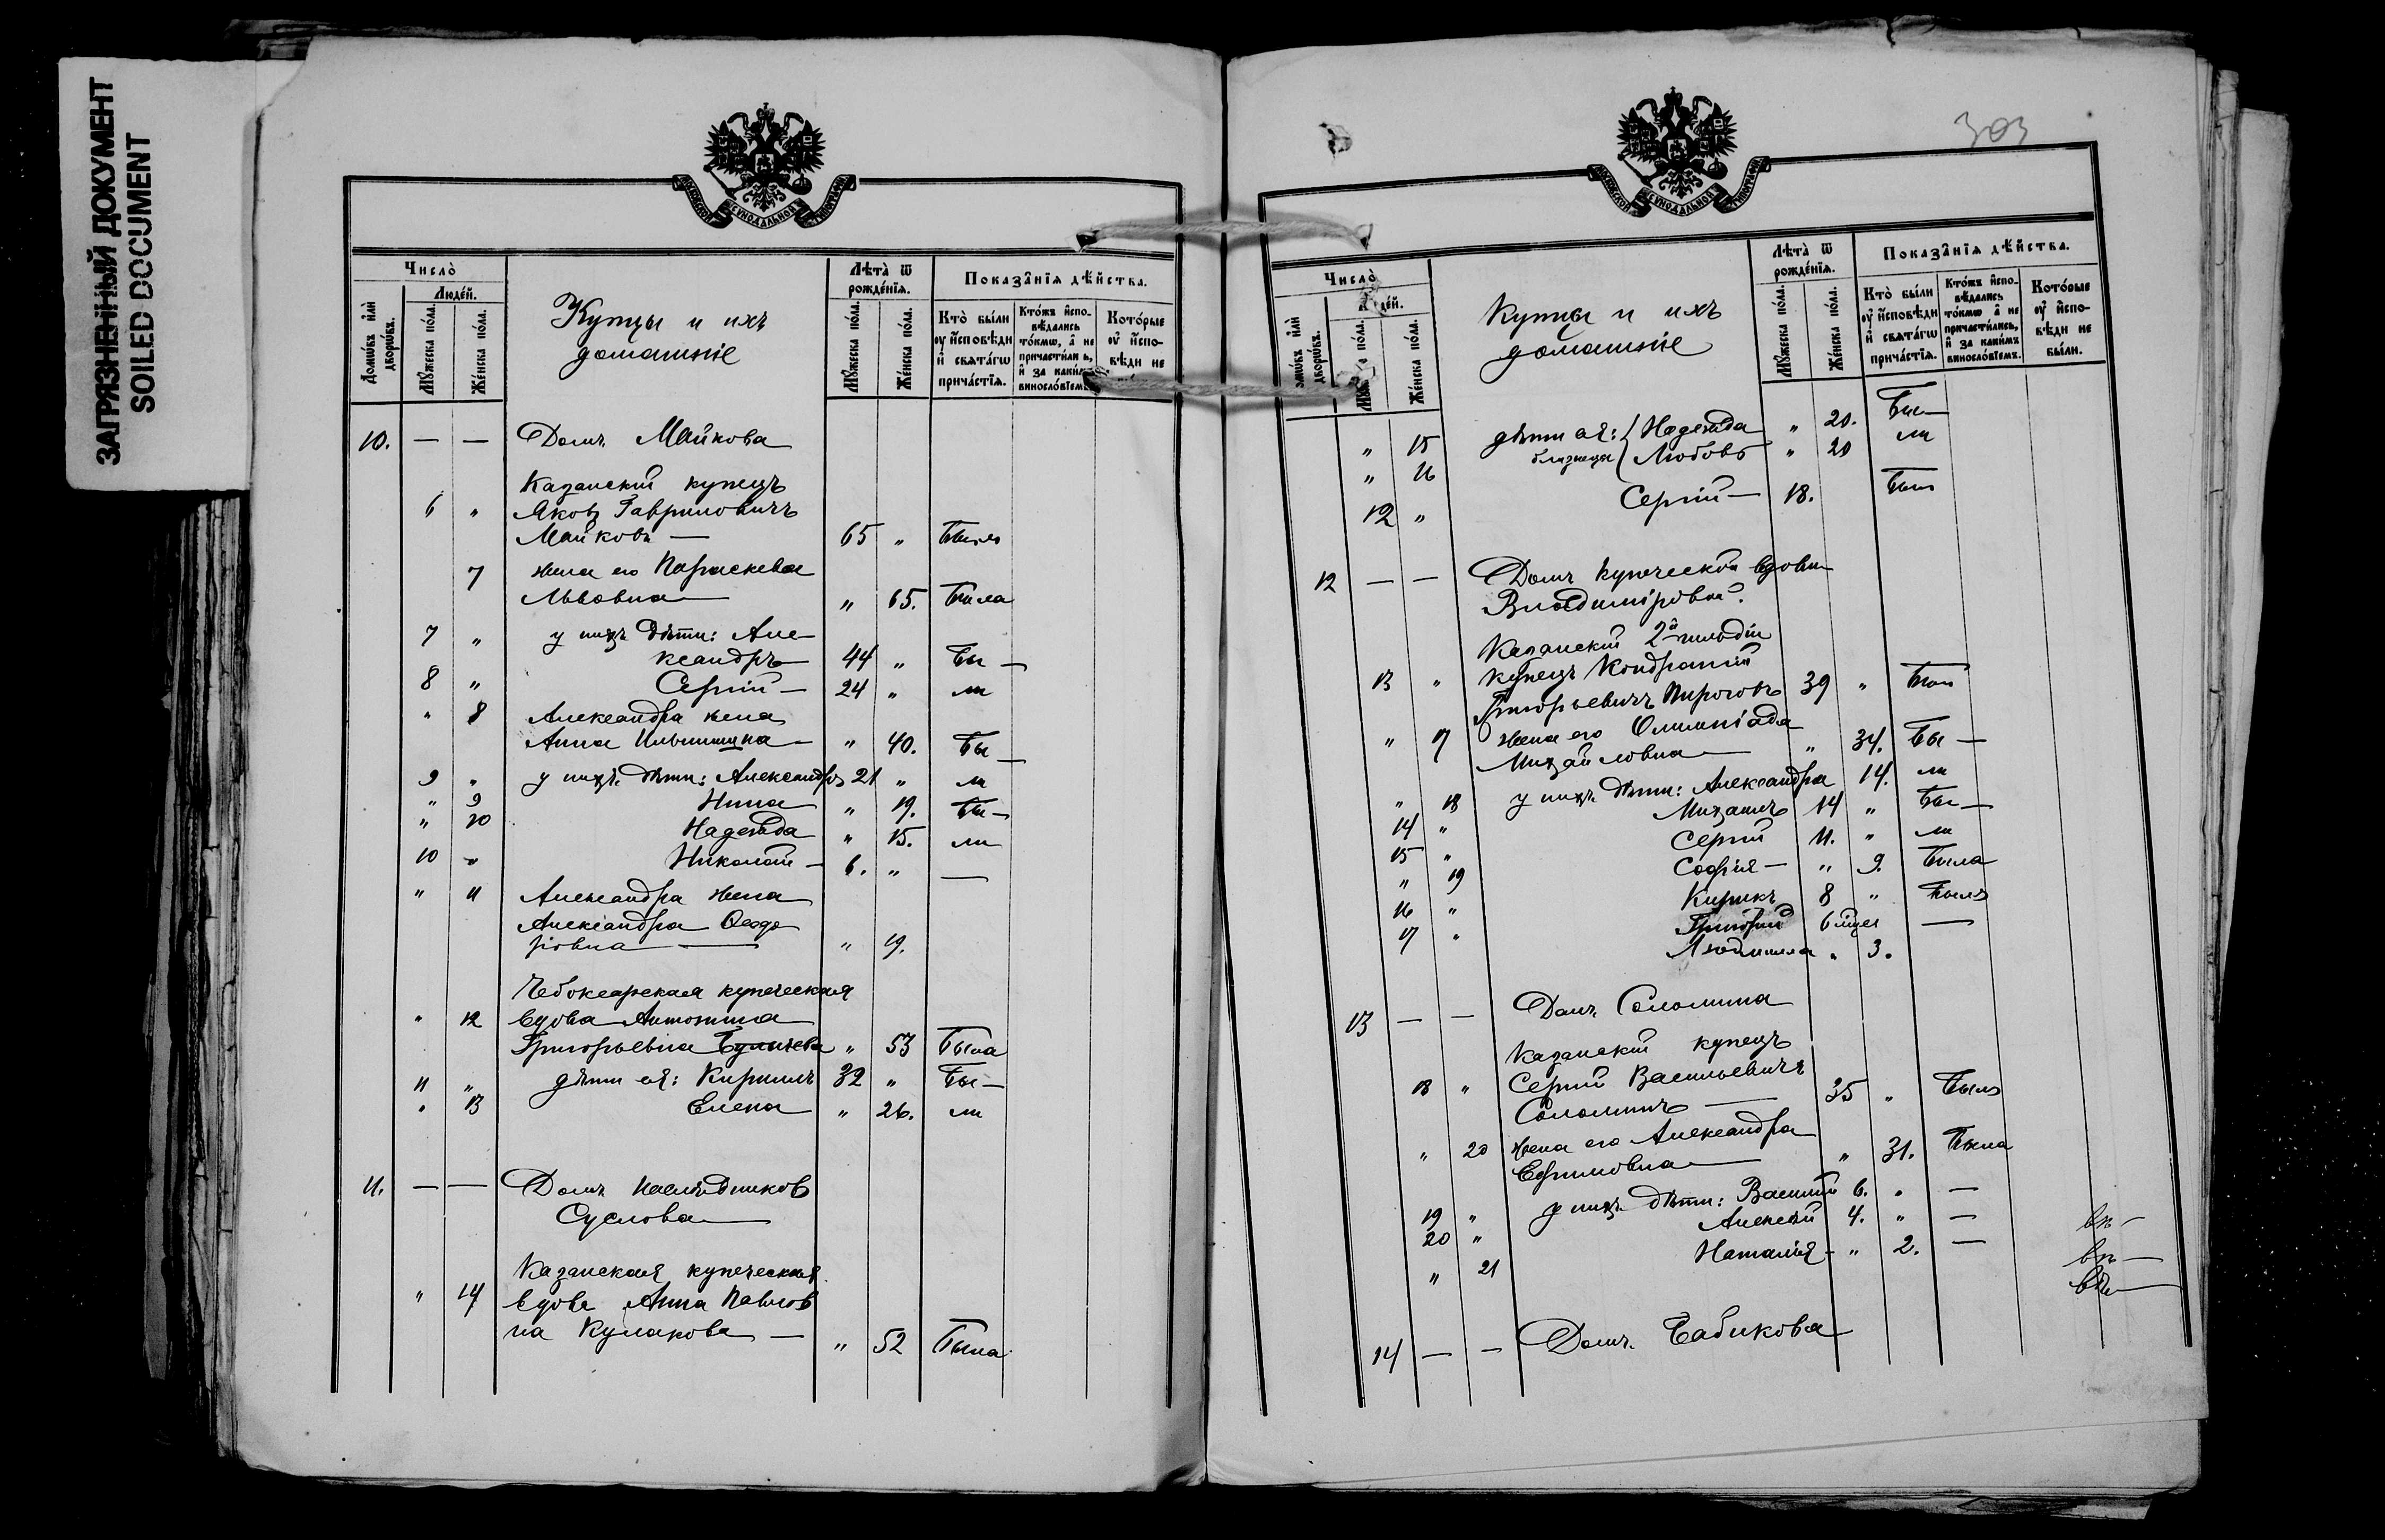 ЗАГРЯЗНЕННЫЙ ДОКУМЕНТ
SOILED DOCUMENT
МОСКОВСКОЙ СѴНОДАЛЬНОЙ ТИПОГРАФІИ
Число̀
Люде́й.
Домѡ́въ и҆лѝ дворѡ́въ.
Мꙋ́жеска по́ла.
Же́нска по́ла.
Купцы и ихъ
домашніе
Лѣта̀ ѿ рожде́нїѧ.
Мꙋ́жеска по́ла.
Же́нска по́ла.
Показа̂нїѧ дѣ́йства.
Кто̀ бы́ли ᲂу҆ и҆сповѣди и҆ свята́гѡ прича́стїѧ.
Кто́жъ и҆спо-вѣдались то́кмѡ, а҆ не причасти́ли ь, и҆ за каки́м винослове́емъ
Кото́рые ᲂу҆ и҆спо-вѣди не
10. — — Домъ Майкова
Казанскій купецъ
6 " Яковъ Гавриловичъ
Майковъ — 65 " Былъ
7 жена его Параскева
Львовна — " 65. Была
7 " у нихъ дѣти: Але-
ксандръ 44 " Бы —
8 " Сергій — 24 " ли
" 8 Александра жена
Анна Ильинишна — " 40. Бы —
9 " у нихъ дѣти: Александръ 21 " ли
" 9 Нина " 19. Бы —
" 10 Надежда " 15. ли
10 " Николай — 6. " —
" 11 Александра жена
Александра Ѳеодо
ровна — " 19.
Чебоксарская купеческая
" 12 вдова Антонина
Григорьевна " 53 Была
11 " дѣти ея: Кириллъ 32 " Бы —
" 13 Елена " 26. ли
11. — — Домъ наслѣдниковъ
Суслова
Казанская купеческая
" 14 вдова Анна Павлов
на Кулакова — " 52 Была
303
МОСКОВСКОЙ СѴНОДАЛЬНОЙ ТИПОГРАФІИ
Число̀
дей.
омѡ́въ и҆лѝ дворѡ́въ.
Мꙋ́ по́ла.
Же́нска по́ла.
Купцы и ихъ
домашніе
Лѣта̀ ѿ рожде́нїѧ.
Мꙋ́жеска по́ла.
Же́нска по́ла.
Показа̂нїѧ дѣ́йства.
Кто̀ бы́ли ᲂу҆ и҆сповѣди и҆ свята́гѡ прича́стїѧ.
Кто́жъ и҆спо-вѣдались то́кмѡ а҆ не причасти́лись, и҆ за каки́мъ винослове́емъ.
Кото́рые ᲂу҆ и҆спо-вѣди не бы́ли.
" 15 дѣти ея: Надежда " 20. Бы —
" 16 близнецы Любовь " 20 ли
12 " Сергій — 18. Былъ
12 — — Домъ купеческой вдовы
Владиміровой.
Казанскій 2й гильдіи
13 " купецъ Кондратій
Григорьевичъ Пироговъ 39 " Былъ
" 17 жена его Олимпіада
Михайловна — " 34. Бы —
" 18 у нихъ дѣти: Александра 14. ли
14 " Михаилъ 14 " Бы —
15 " Сергій 11. " ли
" 19 Софія — " 9. Была
16 " Кирикъ 8 " Былъ
17 " Григорій 6 мцев —
Людмила " 3.
13 — — Домъ Соломина
Казанскій купецъ
18 " Сергій Васильевичъ
Соломинъ — 35 " Былъ
" 20 жена его Александра
Ефимовна — " 31. Была
19 " у нихъ дѣти: Василій 6. " —
20 " Алексѣй 4. " —
" 21 Наталія — " 2. —
14 — — Домъ Бабикова